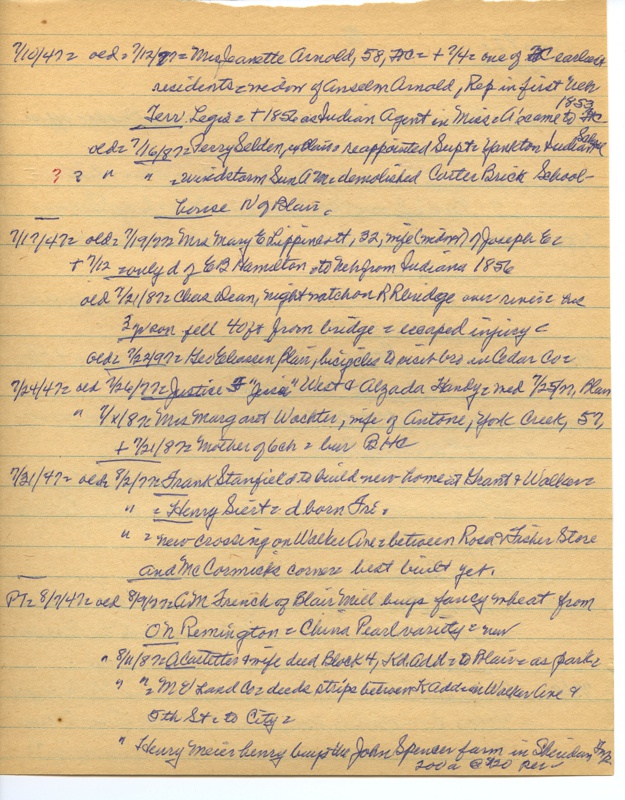 7/10/47= oed= 7/12/97= Mrs Jeanette Arnold, 58, FC= + 7/4= one of FC earliest
residents= widow of Anselm Arnold, Rep in first Neb
Terr Legis= + 1856 as Indian Agent in Miss= A's came to FC 1853
oed= 7/16/87= Perry Selden, reappointed Supt= Yankton Indian School
? ? " " = windstorm Sun AM= demolished Carter Brick School-
house N of Blair.
7/17/47= oed= 7/19/77= Mrs Mary E Lippincott, 32, wife (widow) of Joseph E=
+ 7/12 = only d of E B Hamilton= to Neb from Indiana 1856
oed 7/21/87= Chas Dean, night watch on RR bridge over river= his
3 yr son fell 40 ft from bridge= escaped injury=
oed= 7/22/97= Geo Eliassen Blair, bicycles to visit bro in Cedar Co=
7/24/47= oed 7/26/77= Justice F "Jesia" West & Alzada Handy= med 7/25/77, Blair
" 7/x/87= Mrs Margaret Wachter, wife of Antone, York Creek, 57,
+ 7/21/87= Mother of 6 ch= bur BHC
7/31/47= oed= 8/2/77= Frank Stanfield to build new home at Grant & Walker=
" = Henry Siert= d born Fri=
" = new crossing on Walker Ave= between Rosa & Fisher Store
and McCormicks corner= best built yet.
PT= 8/7/47= oed 8/9/77= A M French of Blair Mill buys fancy wheat from
ON Remington= China Pearl variety= new
" 8/11/87= A Castetter & wife deed Block 4, Kd Add= to Blair= as park=
" " = M V Land Co= deeds strips between K add on Walker Ave &
5th St= to City=
" Henry Meierhenry buys the John Spencer farm in Sheridan Twp
200 a @ $20 per